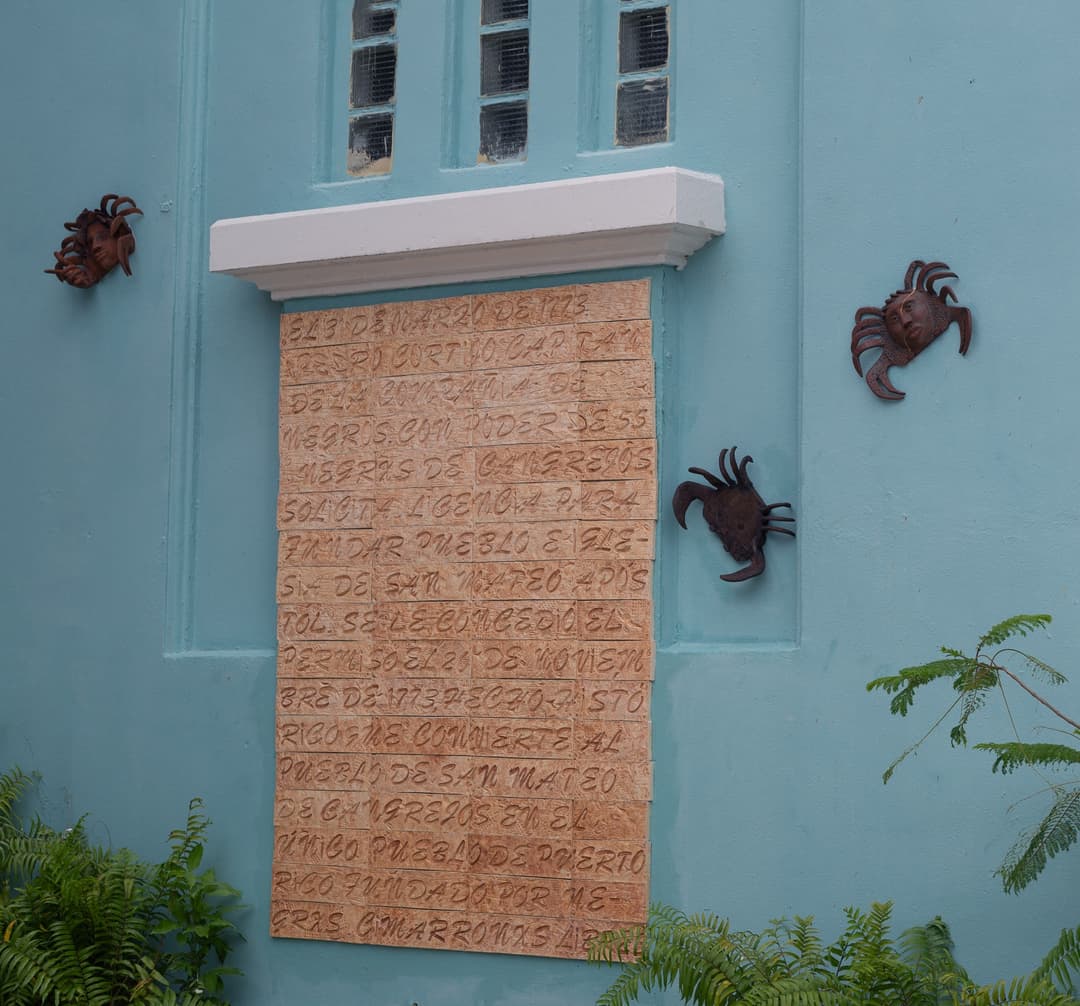 EL 31 DE MARZO DE 1773
PEDRO CORTIJO CAPITAN
DE LA COMPAÑIA DE
NEGRXS CON PODER DE 55
NEGRXS DE CANGREJOS
SOLICITA LICENCIA PARA
FUNDAR PUEBLO E IGLE-
SIA DE SAN MATEO APOS
TOL. SE LE CONCEDIÓ EL
PERMISO EL 20 DE NOVIEM
BRE DE 1773, HECHO HISTÓ
RICO QUE CONVIERTE AL
PUEBLO DE SAN MATEO
DE CANGREJOS EN EL
ÚNICO PUEBLO DE PUERTO
RICO FUNDADO POR NE-
GRXS CIMARRONXS